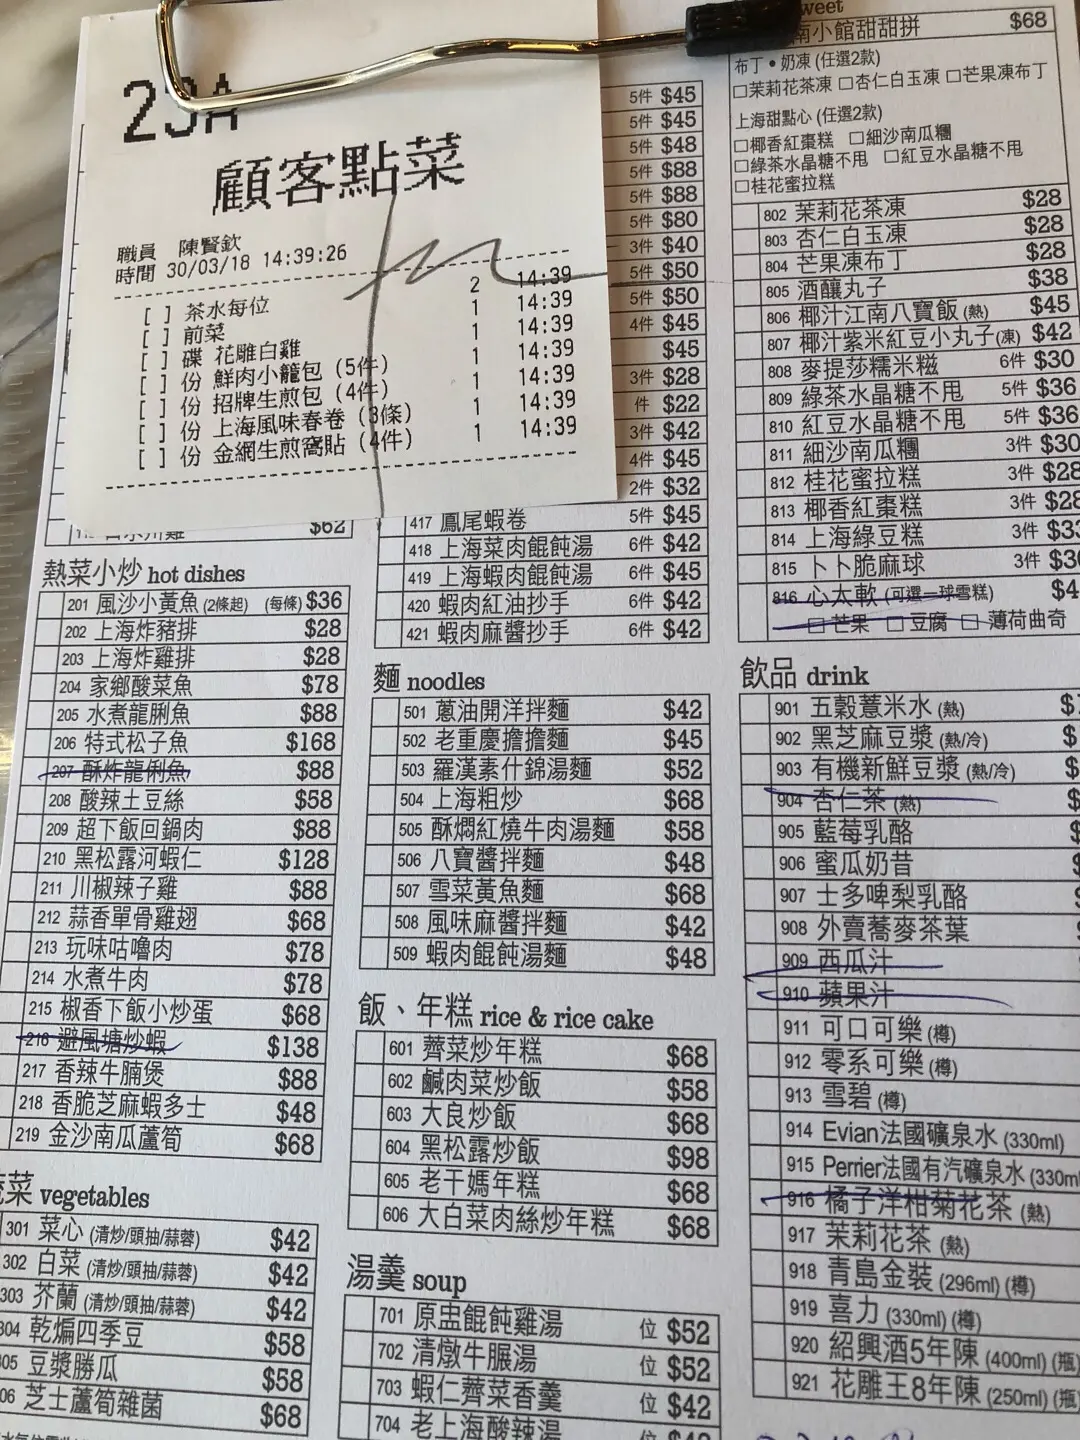 23A
顧客點菜
職員 陳賢欽
時間 30/03/18 14:39:26
[ ] 茶水每位 2 14:39
[ ] 前菜 1 14:39
[ ] 碟 花雕白雞 1 14:39
[ ] 份 鮮肉小籠包 (5件) 1 14:39
[ ] 份 招牌生煎包 (4件) 1 14:39
[ ] 份 上海風味春卷 (3條) 1 14:39
[ ] 份 金網生煎窩貼 (4件) 1 14:39
$62
熱菜小炒 hot dishes
201 風沙小黃魚 (2條起) (每條) $36
202 上海炸豬排 $28
203 上海炸雞排 $28
204 家鄉酸菜魚 $78
205 水煮龍脷魚 $88
206 特式松子魚 $168
207 酥炸龍俐魚 $88
208 酸辣土豆絲 $58
209 超下飯回鍋肉 $88
210 黑松露河蝦仁 $128
211 川椒辣子雞 $88
212 蒜香單骨雞翅 $68
213 玩味咕嚕肉 $78
214 水煮牛肉 $78
215 椒香下飯小炒蛋 $68
216 避風塘炒蝦 $138
217 香辣牛腩煲 $88
218 香脆芝麻蝦多士 $48
219 金沙南瓜蘆筍 $68
菜 vegetables
301 菜心 (清炒/頭抽/蒜蓉) $42
302 白菜 (清炒/頭抽/蒜蓉) $42
303 芥蘭 (清炒/頭抽/蒜蓉) $42
304 乾煸四季豆 $58
305 豆漿勝瓜 $58
306 芝士蘆筍雜菌 $68
5件 $45
5件 $45
5件 $48
5件 $88
5件 $88
5件 $80
3件 $40
5件 $50
5件 $50
4件 $45
$45
3件 $28
件 $22
3件 $42
4件 $45
2件 $32
417 鳳尾蝦卷 5件 $45
418 上海菜肉餛飩湯 6件 $42
419 上海蝦肉餛飩湯 6件 $45
420 蝦肉紅油抄手 6件 $42
421 蝦肉麻醬抄手 6件 $42
麵 noodles
501 蔥油開洋拌麵 $42
502 老重慶擔擔麵 $45
503 羅漢素什錦湯麵 $52
504 上海粗炒 $68
505 酥燜紅燒牛肉湯麵 $58
506 八寶醬拌麵 $48
507 雪菜黃魚麵 $68
508 風味麻醬拌麵 $42
509 蝦肉餛飩湯麵 $48
飯、年糕 rice & rice cake
601 薺菜炒年糕 $68
602 鹹肉菜炒飯 $58
603 大良炒飯 $68
604 黑松露炒飯 $98
605 老干媽年糕 $68
606 大白菜肉絲炒年糕 $68
湯羹 soup
701 原盅餛飩雞湯 位 $52
702 清燉牛腒湯 位 $52
703 蝦仁薺菜香羹 位 $42
704 老上海酸辣湯 位
weet
南小館甜甜拼 $68
布丁•奶凍 (任選2款)
□茉莉花茶凍 □杏仁白玉凍 □芒果凍布丁
上海甜點心 (任選2款)
□椰香紅棗糕 □細沙南瓜糰
□綠茶水晶糖不甩 □紅豆水晶糖不甩
□桂花蜜拉糕
802 茉莉花茶凍 $28
803 杏仁白玉凍 $28
804 芒果凍布丁 $28
805 酒釀丸子 $38
806 椰汁江南八寶飯 (熱) $45
807 椰汁紫米紅豆小丸子 (凍) $42
808 麥提莎糯米糍 6件 $30
809 綠茶水晶糖不甩 5件 $36
810 紅豆水晶糖不甩 5件 $36
811 細沙南瓜糰 3件 $30
812 桂花蜜拉糕 3件 $28
813 椰香紅棗糕 3件 $28
814 上海綠豆糕 3件
815 卜卜脆麻球 3件
816 心太軟 (可選一球雪糕)
□ 芒果 □ 豆腐 □ 薄荷曲奇
飲品 drink
901 五穀薏米水 (熱)
902 黑芝麻豆漿 (熱/冷)
903 有機新鮮豆漿 (熱/冷)
904 杏仁茶 (熱)
905 藍莓乳酪
906 蜜瓜奶昔
907 士多啤梨乳酪
908 外賣蕎麥茶葉
909 西瓜汁
910 蘋果汁
911 可口可樂 (樽)
912 零系可樂 (樽)
913 雪碧 (樽)
914 Evian法國礦泉水 (330ml)
915 Perrier法國有汽礦泉水 (330m
916 橘子洋柑菊花茶 (熱)
917 茉莉花茶 (熱)
918 青島金裝 (296ml) (樽)
919 喜力 (330ml) (樽)
920 紹興酒5年陳 (400ml) (瓶)
921 花雕王8年陳 (250ml) (瓶